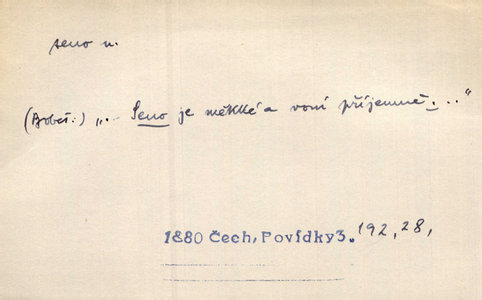 seno n.
(Bobeš:) „.. Seno je měkké a voní příjemně..."
1880 Čech, Povídky3. 192, 28,